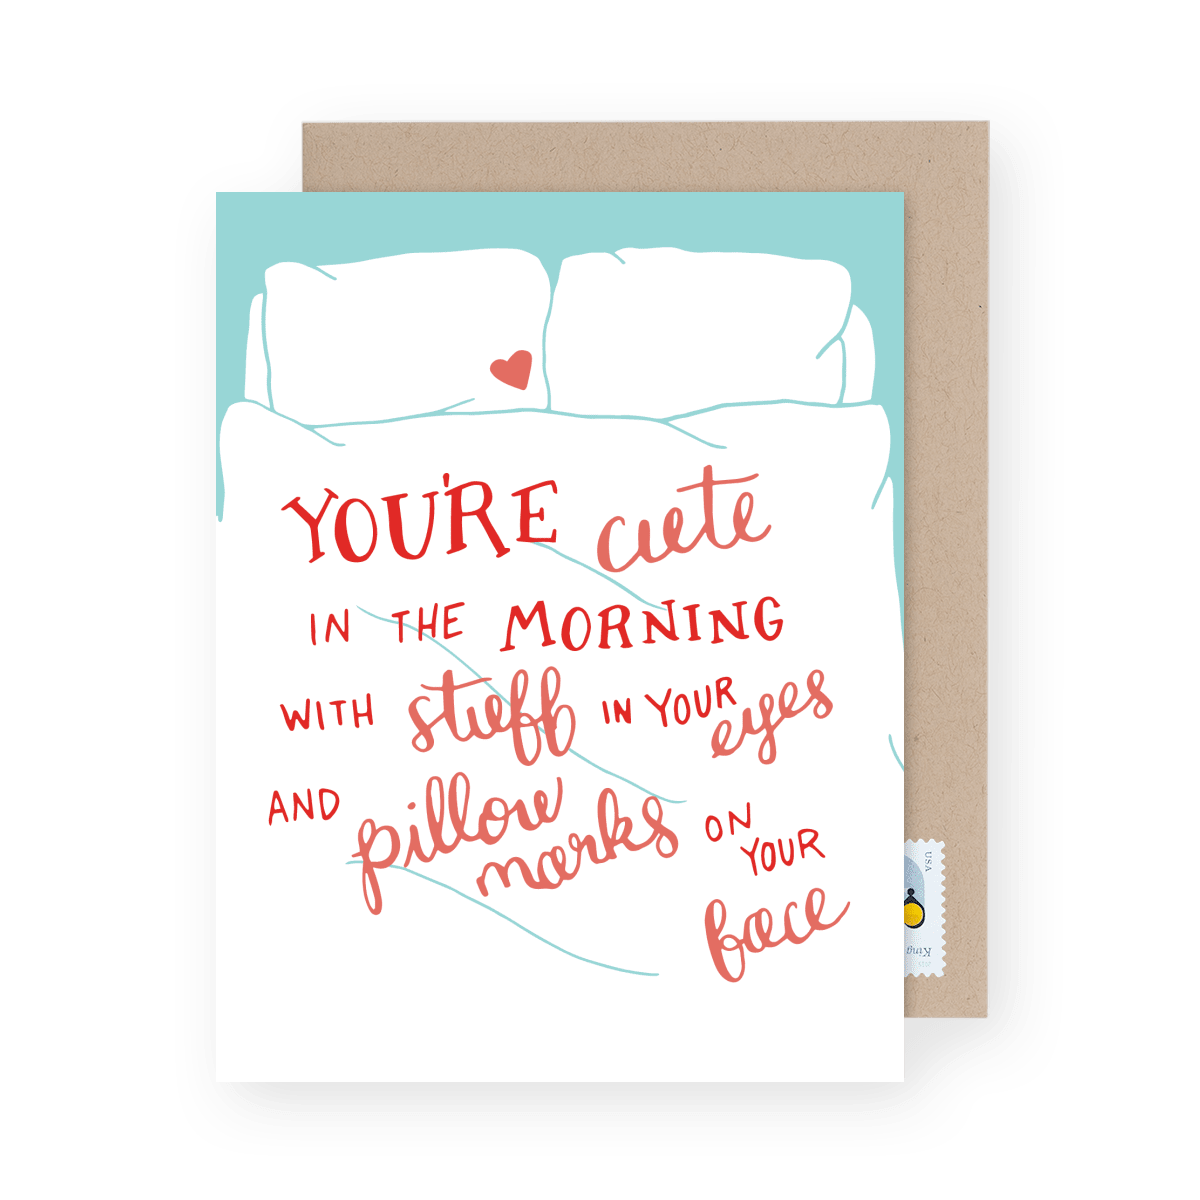 YOU'RE cute
IN THE MORNING
WITH stuff IN YOUR eyes
AND pillow marks ON YOUR
face
USA
King